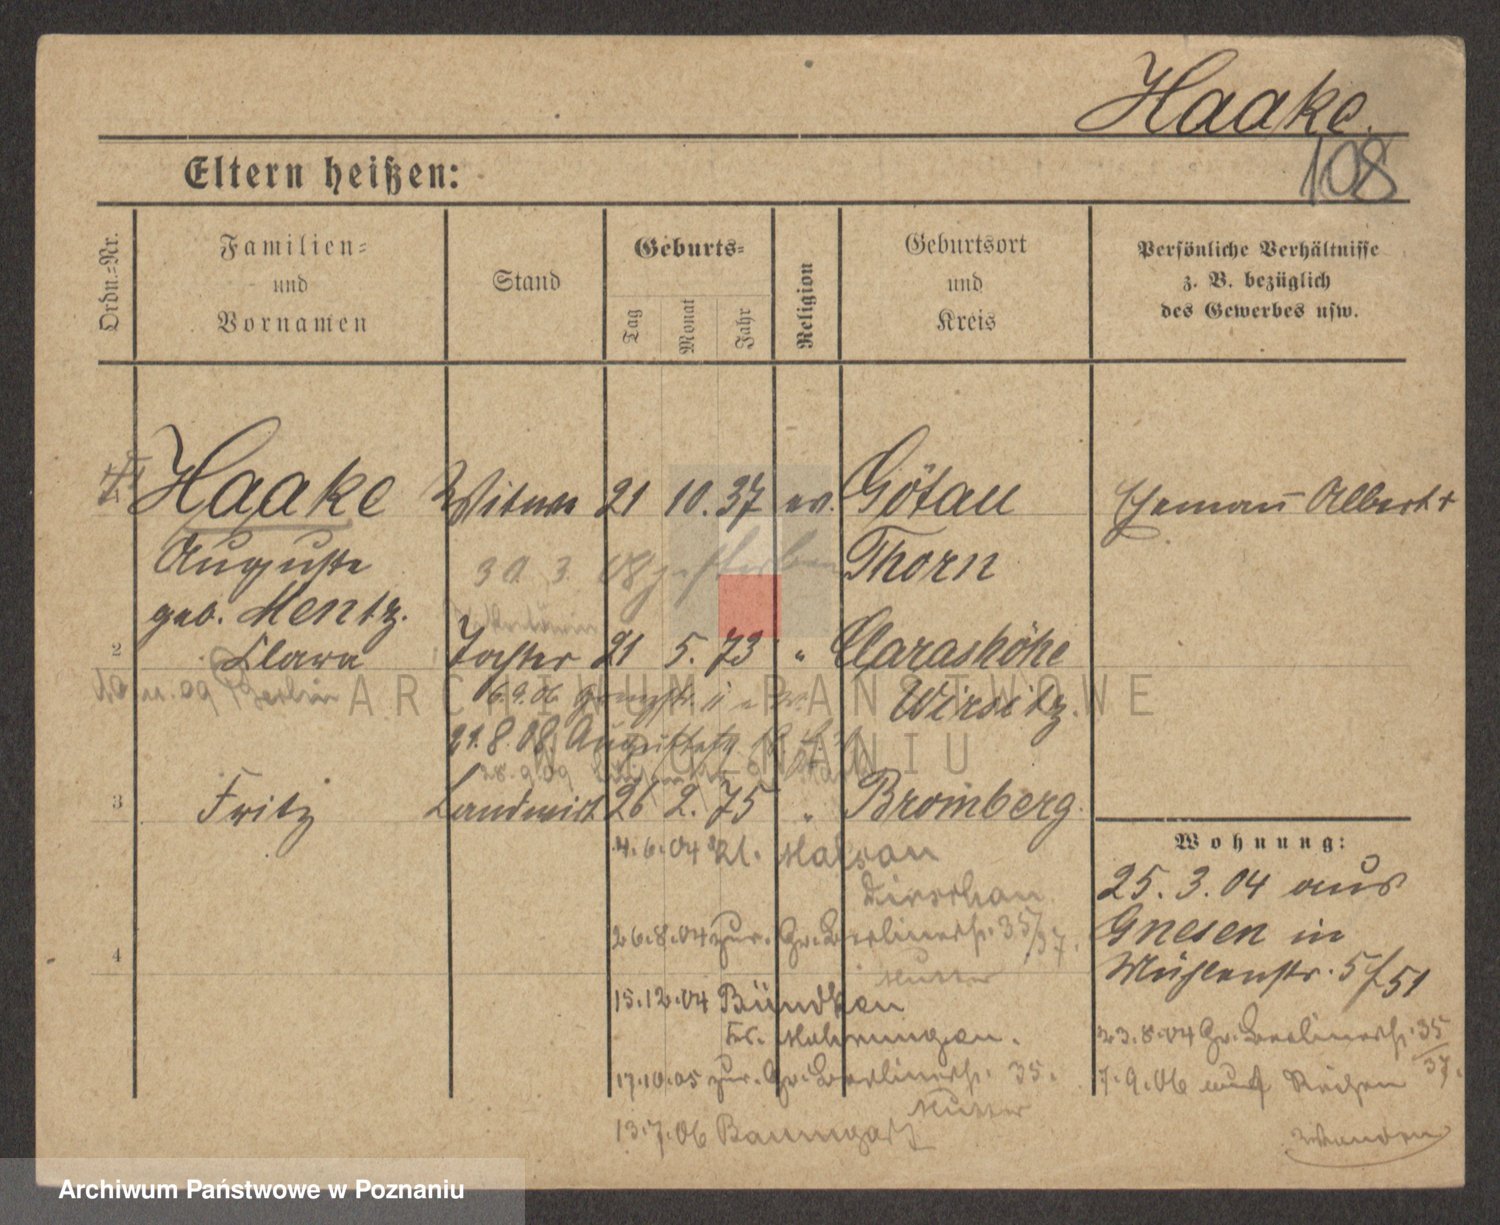 Haake.
108
Eltern heißen:
Ordn.-Nr.
Familien-
und
Vornamen
Stand
Geburts-
Tag
Monat
Jahr
Religion
Geburtsort
und
Kreis
Persönliche Verhältnisse
z. B. bezüglich
des Gewerbes usw.
Haake Witwe 21 10. 37 ev. Götau Ehemann Albert +
Auguste 30. 3. 08 gestorben Thorn
geb. Mentz.
2 Clara Tochter 21 5. 73 " Clarashöhe
09 Berlin 6.9.06 Wirsitz.
21.8.08 Augustastr.
28.9.09
3 Fritz Landwirt 26 2. 75 " Bromberg.
4.6.04 Kl. Malsau
Dirschau
26.8.04 zur. Gr. Berlinerstr. 35/37.
Mutter
4
15.12.04 Bündken
Kr. Mohrungen.
17.10.05 zur. Gr. Berlinerstr. 35.
Mutter
13.7.06 Baumgart
Wohnung:
25. 3. 04 aus
Gnesen in
Mühlenstr. 5 f 51
23.8.04 Gr. Berlinerstr. 35/37.
7.9.06 auf Reisen
ARCHIWUM PAŃSTWOWE
W POZNANIU
Archiwum Państwowe w Poznaniu